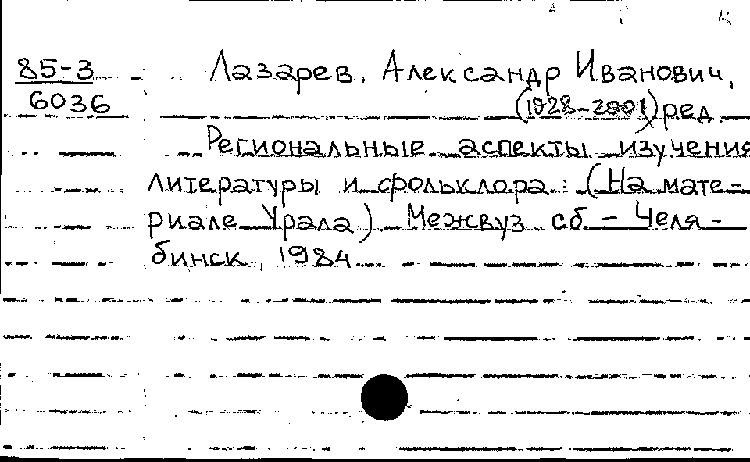 85-3
6036
Лазарев, Александр Иванович,
(1928-2001) ред
Региональные аспекты изучения
литературы и фольклора : (На мате-
риале Урала) Межвуз сб. - Челя-
бинск, 1984